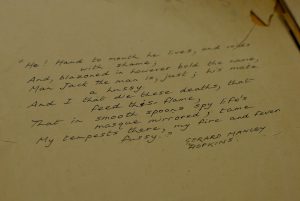 "He! Hand to mouth he lives, and voids
with shame;
And, blazoned in however bold the name,
Man Jack the man is, just; his mate
a hussy.
And I that die these deaths, that
feed this flame,
That in smooth spoons spy life's
masque mirrored; tame
My tempests there, my fire and fever
fussy."
GERARD MANLEY
HOPKINS.